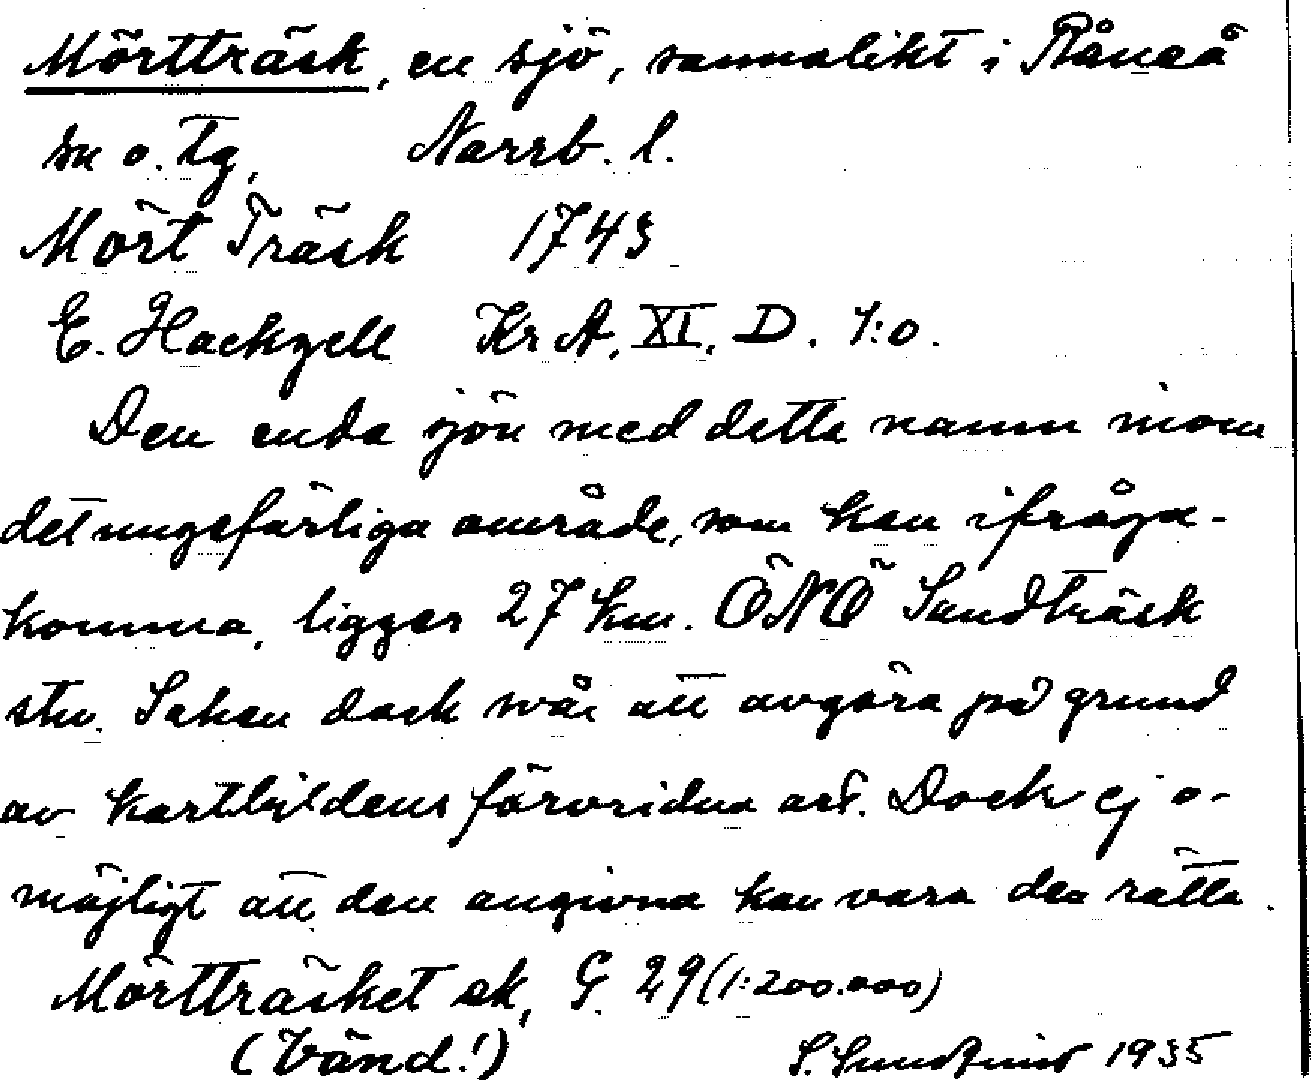 Mörtträsk, en sjö, sannolikt i Råneå
sn o. tg, Norrb. l.
Mört Träsk 1743
E. Hackzell Kr A. XI. D. 1:0.
Den enda sjön med detta namn inom
det ungefärliga område, som kan ifråga-
komma, ligger 27 km. ÖNÖ Sandträsk
stn. Saken dock svår att avgöra på grund
av kartbildens förvridna art. Dock ej o-
möjligt att den angivna kan vara den rätta.
Mörtträsket ek, G. 29 (1:200.000)
(Vänd!) S. Sundqvist 1935